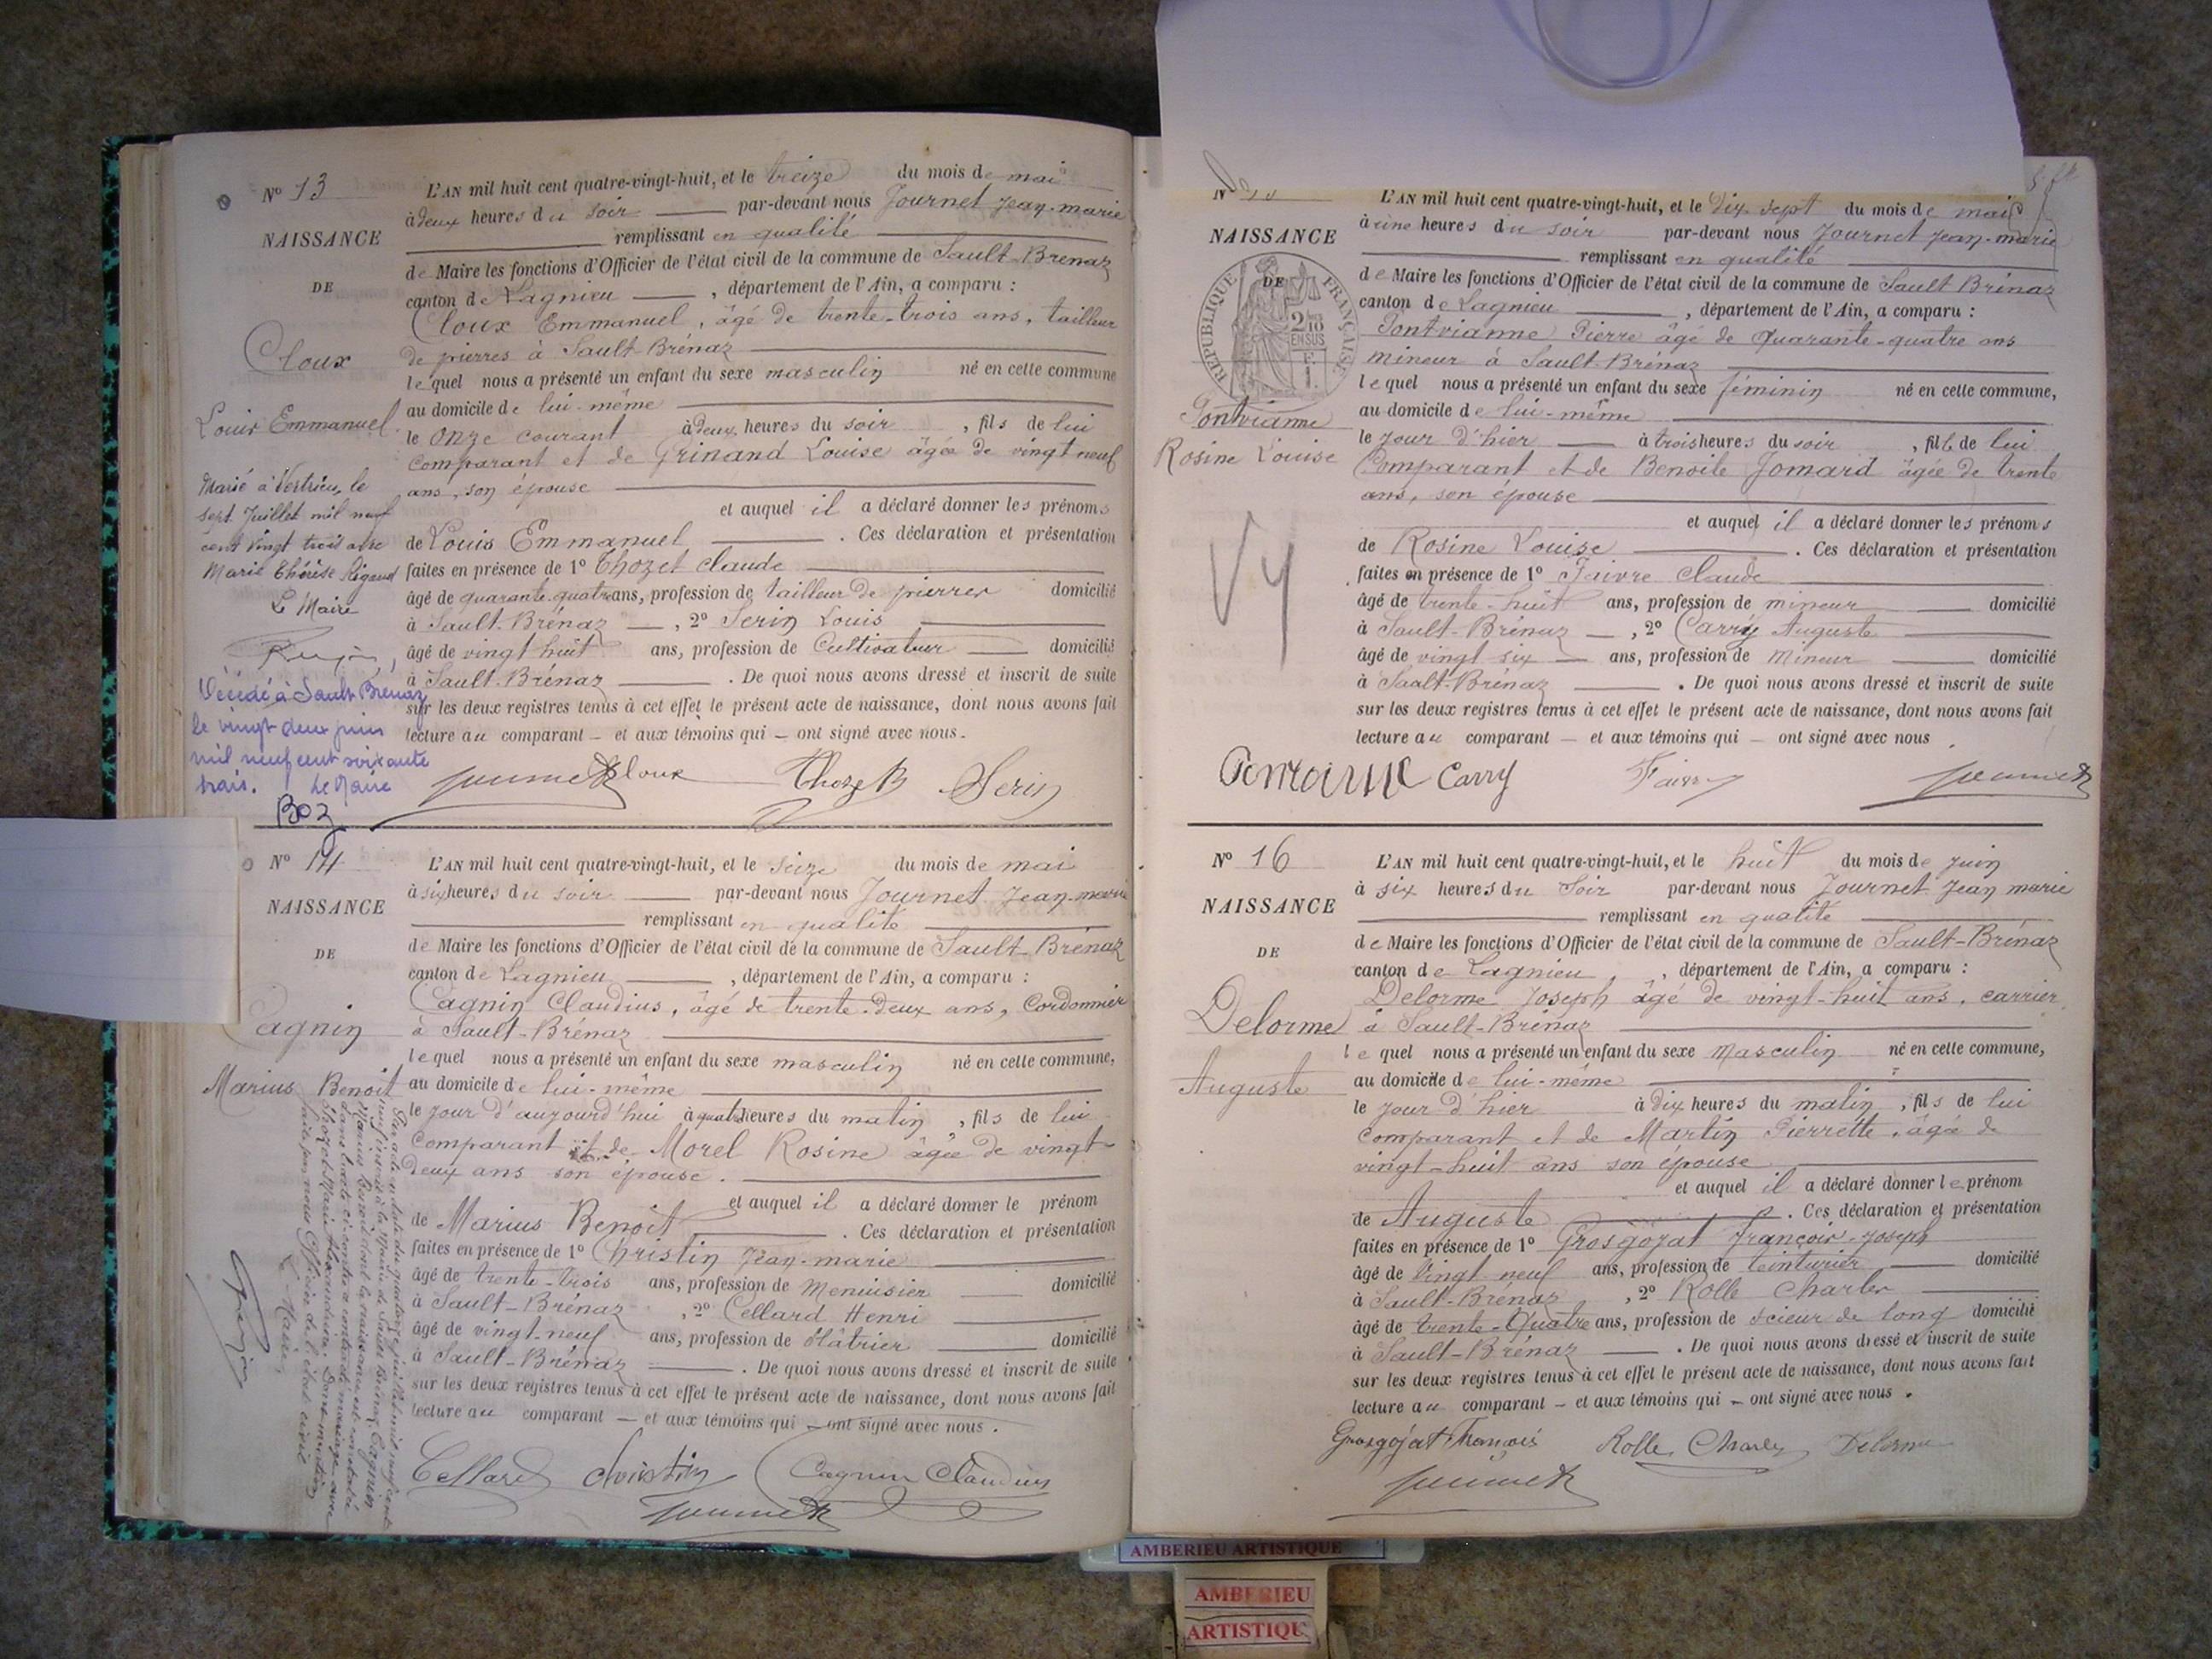 N° 13
NAISSANCE
DE
Cloux
Louis Emmanuel
Marié à Vertrieu, le
sept Juillet mil neuf
cent vingt trois avec
Marie Thérèse Rigaud
Le Maire
Décédé à Sault-Brénaz
le vingt deux juin
mil neuf cent soixante
trois. Le Maire
L'AN mil huit cent quatre-vingt-huit, et le treize du mois de mai
à deux heures du soir par-devant nous Journet Jean-marie
remplissant en qualité
de Maire les fonctions d'Officier de l'état civil de la commune de Sault-Brénaz
canton de Lagnieu, département de l'Ain, a comparu :
Cloux Emmanuel, âgé de trente-trois ans, tailleur
de pierres à Sault-Brénaz
lequel nous a présenté un enfant du sexe masculin né en cette commune
au domicile de lui-même
le onze courant à deux heures du soir, fils de lui
comparant et de Grinand Louise âgée de vingt neuf
ans, son épouse
et auquel il a déclaré donner les prénoms
de Louis Emmanuel. Ces déclaration et présentation
faites en présence de 1° Thozet Claude
âgé de quarante-quatre ans, profession de tailleur de pierres domicilié
à Sault-Brénaz, 2° Serin Louis
âgé de vingt huit ans, profession de Cultivateur domicilié
à Sault-Brénaz. De quoi nous avons dressé et inscrit de suite
sur les deux registres tenus à cet effet le présent acte de naissance, dont nous avons fait
lecture au comparant — et aux témoins qui — ont signé avec nous.
Journet Cloux Thozet Serin
N° 14
NAISSANCE
DE
Cagnin
Marius Benoit
L'AN mil huit cent quatre-vingt-huit, et le seize du mois de mai
à six heures du soir par-devant nous Journet Jean-marie
remplissant en qualité
de Maire les fonctions d'Officier de l'état civil de la commune de Sault-Brénaz
canton de Lagnieu, département de l'Ain, a comparu :
Cagnin Claudius, âgé de trente-deux ans, Cordonnier
à Sault-Brénaz
lequel nous a présenté un enfant du sexe masculin né en cette commune,
au domicile de lui-même
le jour d'aujourd'hui à quatre heures du matin, fils de lui
comparant et de Morel Rosine âgée de vingt-
deux ans son épouse.
et auquel il a déclaré donner le prénom
de Marius Benoit. Ces déclaration et présentation
faites en présence de 1° Christin Jean-marie
âgé de trente-trois ans, profession de Menuisier domicilié
à Sault-Brénaz, 2° Cellard Henri
âgé de vingt-neuf ans, profession de Plâtrier domicilié
à Sault-Brénaz. De quoi nous avons dressé et inscrit de suite
sur les deux registres tenus à cet effet le présent acte de naissance, dont nous avons fait
lecture au comparant — et aux témoins qui — ont signé avec nous.
Cellard Christin Cagnin Claudius
Journet
N°
NAISSANCE
DE
RÉPUBLIQUE FRANÇAISE
2/10 EN SUS
Pontvianne
Rosine Louise
L'AN mil huit cent quatre-vingt-huit, et le dix sept du mois de mai
à une heures du soir par-devant nous Journet Jean-marie
remplissant en qualité
de Maire les fonctions d'Officier de l'état civil de la commune de Sault Brénaz
canton de Lagnieu, département de l'Ain, a comparu :
Pontvianne Pierre âgé de Quarante-quatre ans
mineur à Sault-Brénaz
lequel nous a présenté un enfant du sexe féminin né en cette commune,
au domicile de lui-même
le jour d'hier à trois heures du soir, fille de lui
Comparant et de Benoite Jomard âgée de trente
ans, son épouse
et auquel il a déclaré donner les prénoms
de Rosine Louise. Ces déclaration et présentation
faites en présence de 1° Faivre Claude
âgé de trente-huit ans, profession de mineur domicilié
à Sault-Brénaz, 2° Carry Auguste
âgé de vingt six ans, profession de Mineur domicilié
à Sault-Brénaz. De quoi nous avons dressé et inscrit de suite
sur les deux registres tenus à cet effet le présent acte de naissance, dont nous avons fait
lecture au comparant — et aux témoins qui — ont signé avec nous.
Carry Journet
N° 16
NAISSANCE
DE
Delorme
Auguste
L'AN mil huit cent quatre-vingt-huit, et le huit du mois de juin
à six heures du Soir par-devant nous Journet Jean marie
remplissant en qualité
de Maire les fonctions d'Officier de l'état civil de la commune de Sault-Brénaz
canton de Lagnieu, département de l'Ain, a comparu :
Delorme Joseph âgé de vingt-huit ans, carrier
à Sault-Brénaz
lequel nous a présenté un enfant du sexe Masculin né en cette commune,
au domicile de lui-même
le jour d'hier à dix heures du matin, fils de lui
comparant et de Martin Pierrette, âgée de
vingt-huit ans son épouse
et auquel il a déclaré donner le prénom
de Auguste. Ces déclaration et présentation
faites en présence de 1° Grosgojat François-Joseph
âgé de vingt neuf ans, profession de teinturier domicilié
à Sault-Brénaz, 2° Rolle Charles
âgé de trente-Quatre ans, profession de scieur de long domicilié
à Sault-Brénaz. De quoi nous avons dressé et inscrit de suite
sur les deux registres tenus à cet effet le présent acte de naissance, dont nous avons fait
lecture au comparant — et aux témoins qui — ont signé avec nous.
Grosgojat François Rolle Charles Delorme
Journet
AMBERIEU ARTISTIQUE
AMBERIEU
ARTISTIQUE